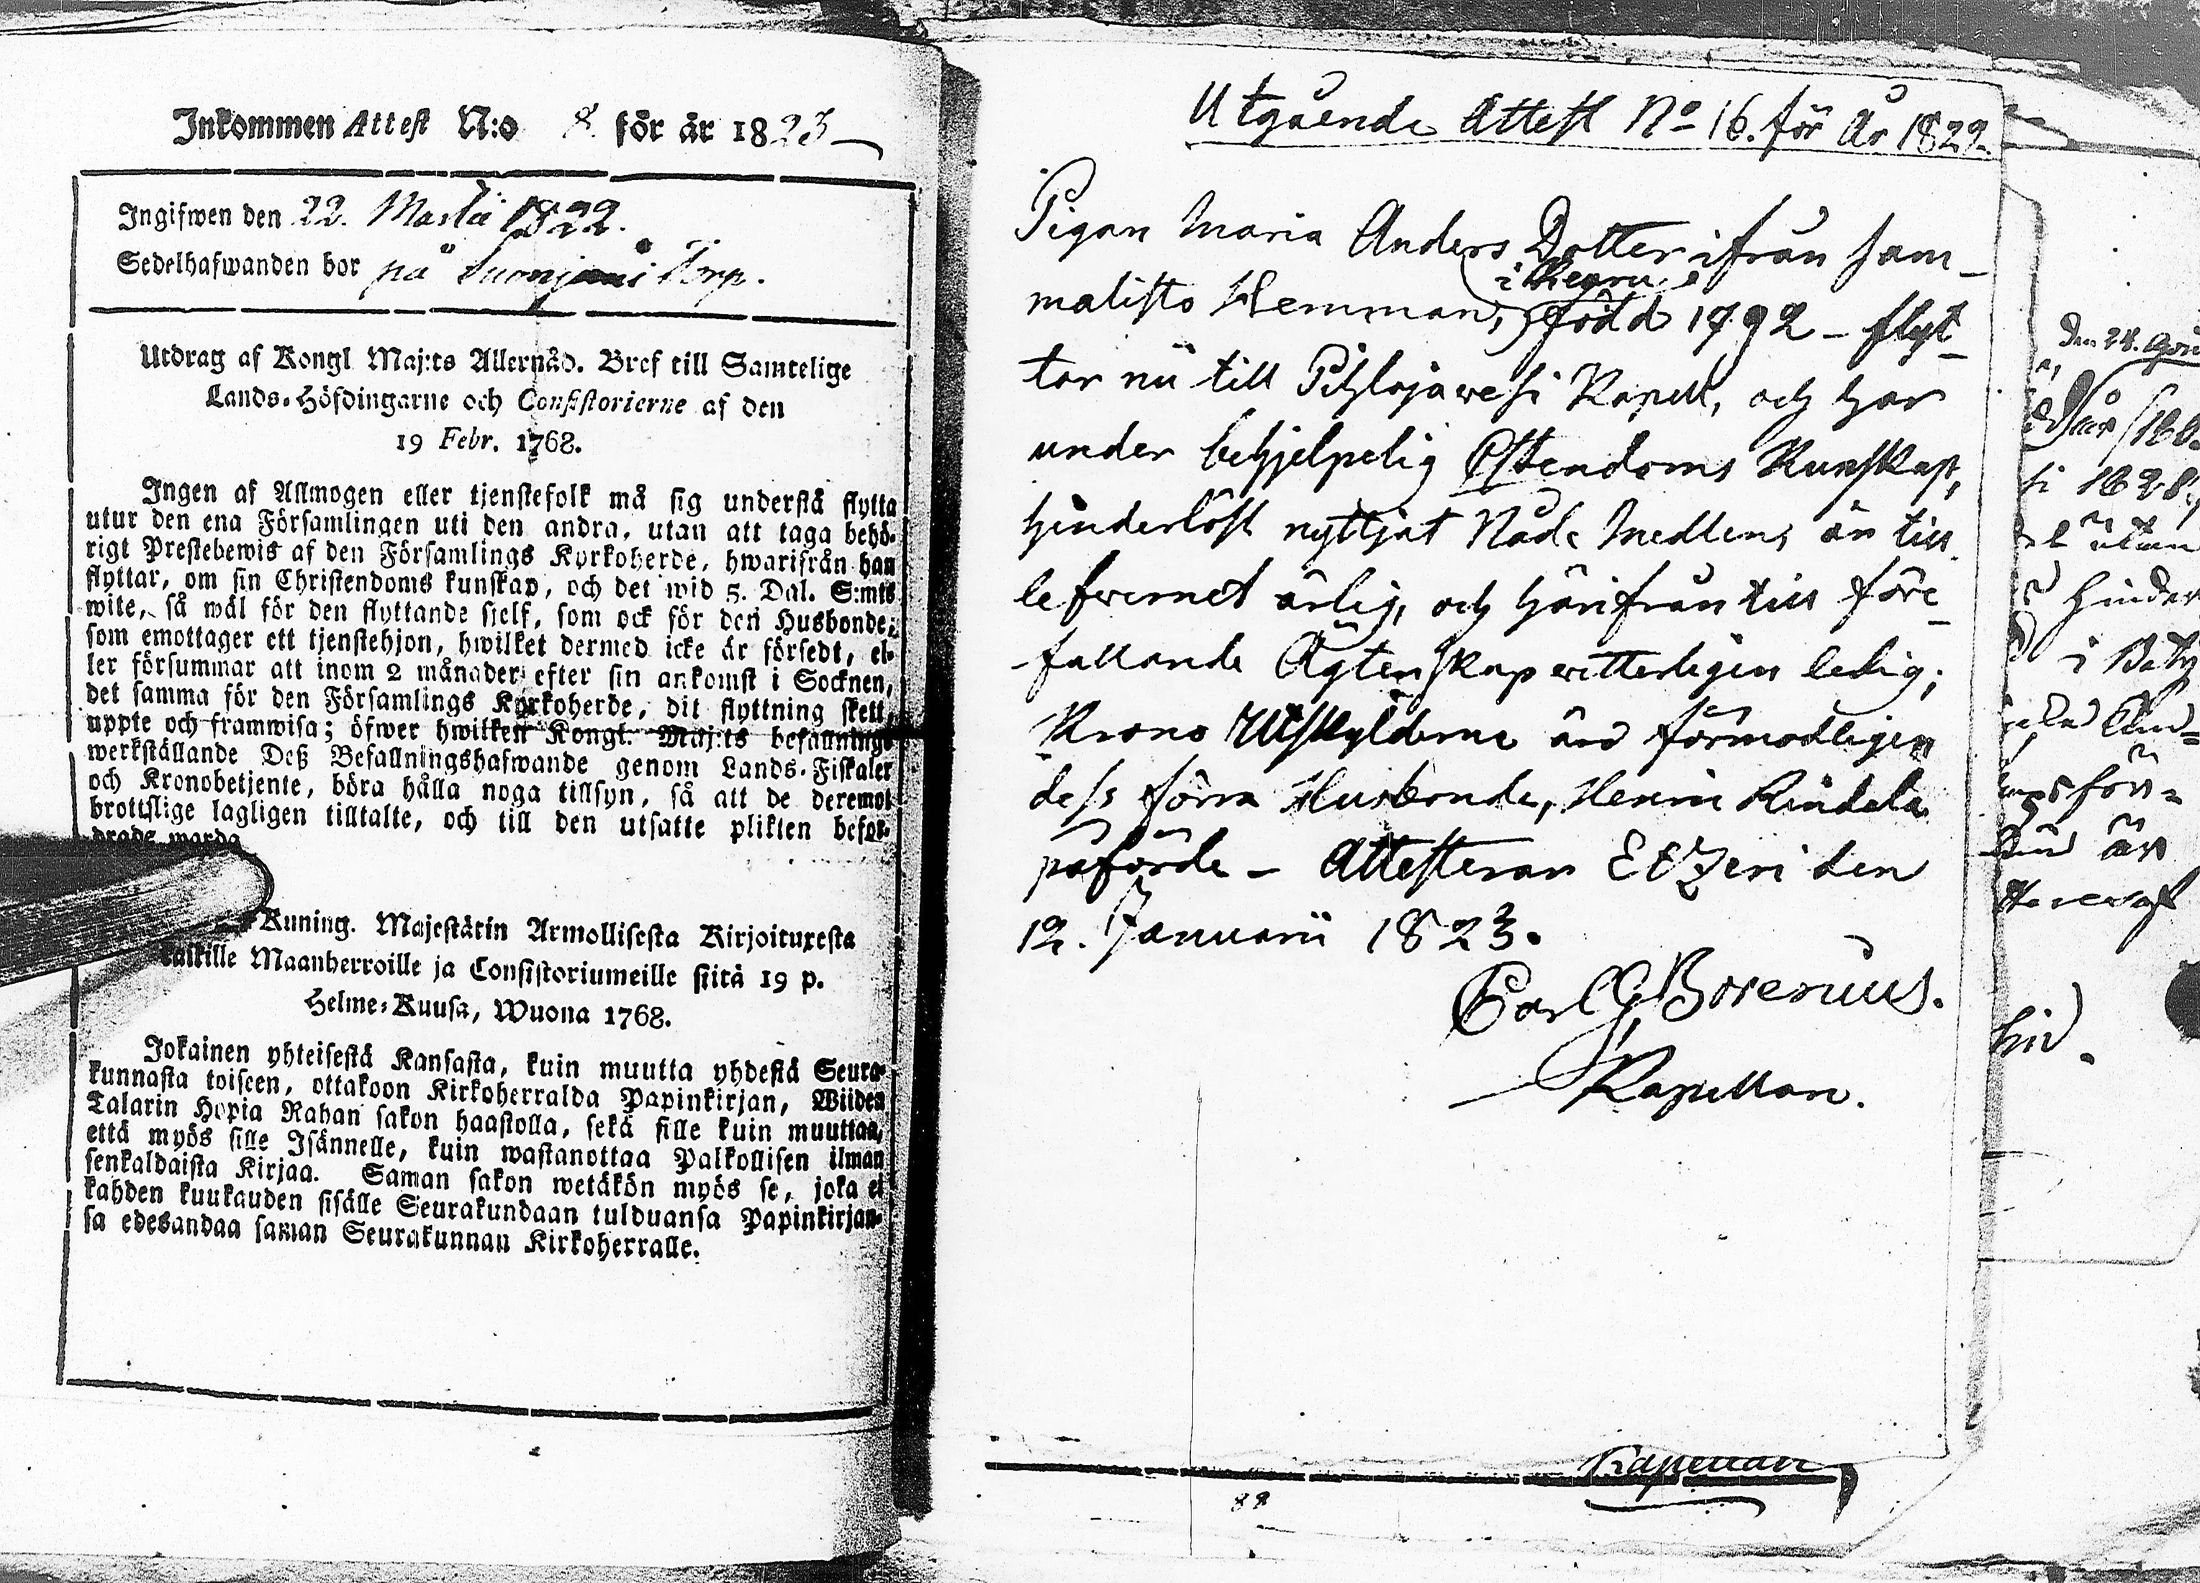 Inkommen Attest N:o 8. för år 1823
Ingifwen den 22. Martii 1822.
Sedelhafwanden bor på Suonjemi Torp.
Utdrag af Kongl Maj:ts Allernåd. Bref till Samtelige
Lands-Höfdingarne och Consistorierne af den
19 Febr. 1768.
Ingen af Allmogen eller tjenstefolk må sig understå flytta
utur den ena Församlingen uti den andra, utan att taga behö-
rigt Prestebewis af den Församlings Kyrkoherde, hwarifrån han
flyttar, om sin Christendoms kunskap, och det wid 5. Dal. S:mts
wite, så wäl för den flyttande sielf, som ock för den Husbonde,
som emottager ett tjenstehjon, hwilket dermed icke är försedt, el-
ler försummar att inom 2 månader efter sin ankomst i Socknen,
det samma för den Församlings Kyrkoherde, dit flyttning skett,
uppte och framwisa; öfwer hwilken Kongl. Maj:ts befallnings
werkställande Deß Befallningshafwande genom Lands-Fiskaler
och Kronobetjente, böra hålla noga tillsyn, så att de deremot
brottslige lagligen tilltalte, och till den utsatte plikten befor-
drade warda
Kuning. Majestätin Armollisesta Kirjoituxesta
kaikille Maanherroille ja Consistoriumeille siitä 19 p.
Helme-Kuusa, Wuona 1768.
Jokainen yhteisestä Kansasta, kuin muutta yhdestä Seura-
kunnasta toiseen, ottakoon Kirkoherralda Papinkirjan, Wiiden
Talarin Hopia Rahan sakon haastolla, sekä sille kuin muuttaa,
että myös sille Isännelle, kuin wastanottaa Palkollisen ilman
senkaldaista Kirjaa. Saman sakon wetäkön myös se, joka ei
kahden kuukauden sisälle Seurakundaan tulduansa Papinkirjan-
sa edesandaa saman Seurakunnan Kirkoherralle.
Utgående Attest No 16. för År 1822.
Pigan Maria Anders Dotter ifrån Sam-
i Keuru
malisto Hemman, född 1792 - flyt-
tar nu till Pihlajawesi Kapell, och har
under behjelpelig Xstendoms Kunskap,
hinderlöst nyttjat Nåde Medlen, är till
lefwernet ärlig, och härifrån till före-
fallande Ägtenskap witterligen ledig;
Krono Utskylderne äro förmodligen
dess förra Husbonde, Henric Rindala
påförde - Attesterar Etzeri den
12. Januarii 1823.
Carl G Borenius.
Kapellan.
Kapellan
den 28. April
1828
utan
hinder
i
för-
är